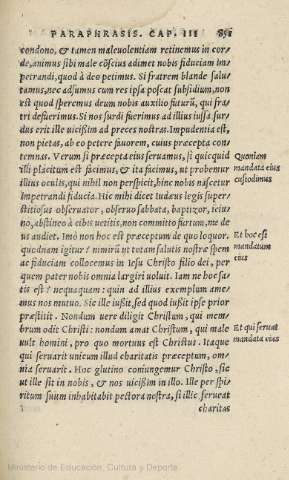 PARAPHRASIS. CAP. III 851
condono, & tamen maleuolentiam retinemus in cor-
de, animus sibi male cōscius adimet nobis fiduciam im-
petrandi, quod à deo petimus. Si fratrem blande salu-
tamus, nec adsumus cum res ipsa poscat subsidium, non
est quod speremus deum nobis auxilio futurū, qui fra-
tri defuerimus. Si nos surdi fuerimus ad illius iussa sur-
dus erit ille uicißim ad preces nostras. Impudentia est,
non pietas, ab eo petere fauorem, cuius præcepta con-
temnas. Verum si præcepta eius seruamus, si quicquid
illi placitum est facimus, & ita facimus, ut probemur
illius oculis, qui nihil non perspicit, hinc nobis nascetur
impetrandi fiducia. Hic mihi dicet Iudæus legis super-
stitiosus obseruator, obseruo sabbata, baptizor, ieiu-
no, abstineo à cibis uetitis, non committo furtum, me de
us audiet. Imò non hoc est præceptum de quo loquor.
quodnam igitur? nimirū ut totam salutis nostræ spem
ac fiduciam collocemus in Iesu Christo filio dei, per
quem pater nobis omnia largiri uoluit. Iam ne hoc sa-
tis est? nequaquam: quin ad illius exemplum ame-
mus nos mutuo. Sic ille iußit, sed quod iußit ipse prior
præstitit. Nondum uere diligit Christum, qui mem-
brum odit Christi: nondum amat Christum, qui male
uult homini, pro quo mortuus est Christus. Itaque
qui seruarit unicum illud charitatis præceptum, om-
nia seruarit. Hoc glutino coniungemur Christo, sic
ut ille sit in nobis, & nos uicißim in illo. Ille per spi-
ritum suum inhabitabit pectora nostra, si illic seruaet
charitas
Quoniam
mandata eius
custodimus
Et hoc est
mandatum
eius
Et qui seruat
mandata eius
Ministerio de Educación, Cultura y Deporte